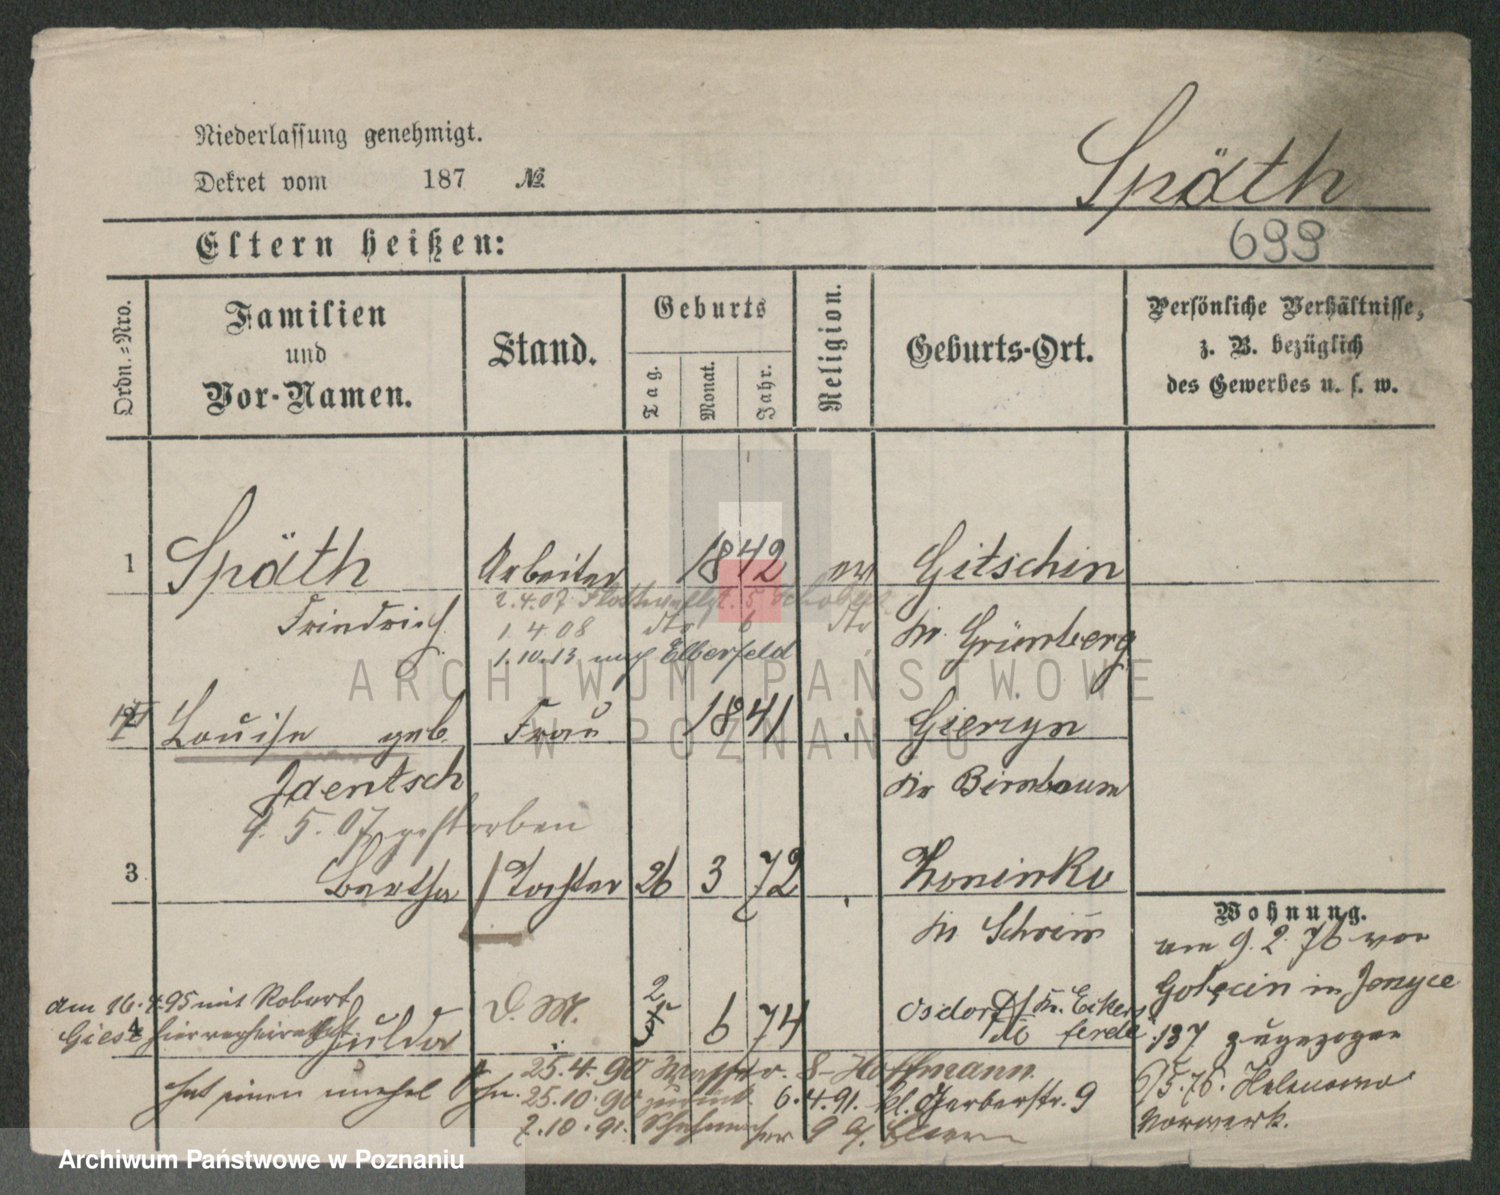 Niederlassung genehmigt.
Dekret vom 187 №
Späth
699
Eltern heißen:
Ordn.-Nro.
Familien
und
Vor-Namen.
Stand.
Geburts
Tag.
Monat.
Jahr.
Religion.
Geburts-Ort.
Persönliche Verhältnisse,
z. B. bezüglich
des Gewerbes u. s. w.
1 Späth Arbeiter 1842 ev Gitschin
Friedrich
2.4.07
1.4.08 dto 6 dto
Kr. Grünberg
1.10.13 nach Elberfeld
2 Louise geb. Frau 1841 Gierzyn
Jdentsch
Kr Birnbaum
9.5.07 gestorben
3 Bertha Tochter 26 3 72
Kr Schrim
Wohnung.
am 9.2.76 von
Golęcin in
am 16.4.95 mit Robert
Giese hier verheirathet
4 Hulda D. M. 2 6 74 Osdorf Kr. Eckern
förde
137 zugezogen
hat einen unehel Sohn.
25.4.90 8 Hoffmann
25.10.90 zurück 6.4.91. kl. Gerberstr. 9
7.10.91. Schuhmacher 9
Vorwerk.
ARCHIWUM PAŃSTWOWE
W POZNANIU
Archiwum Państwowe w Poznaniu